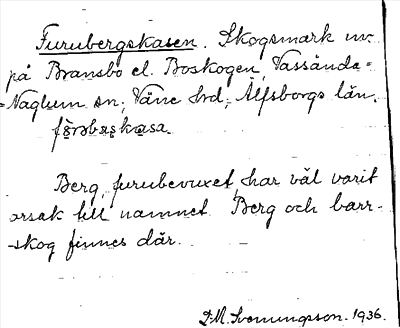 Furubergskasen. Skogsmark nv.
på Bransbo el. Boskogen, Vassända=
=Naglum sn; Väne hrd; Älfsborgs län.
Berg, furubevuxet, har väl varit
orsak till namnet. Berg och barr-
-skog finnes där.
D.M. Svenungsson. 1936.